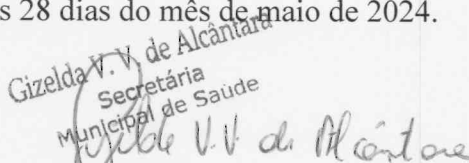 s 28 dias do mês de maio de 2024.
Gizelda V. V. de Alcântara
Secretária
Municipal de Saúde
Gizelda V. V. de Alcântara